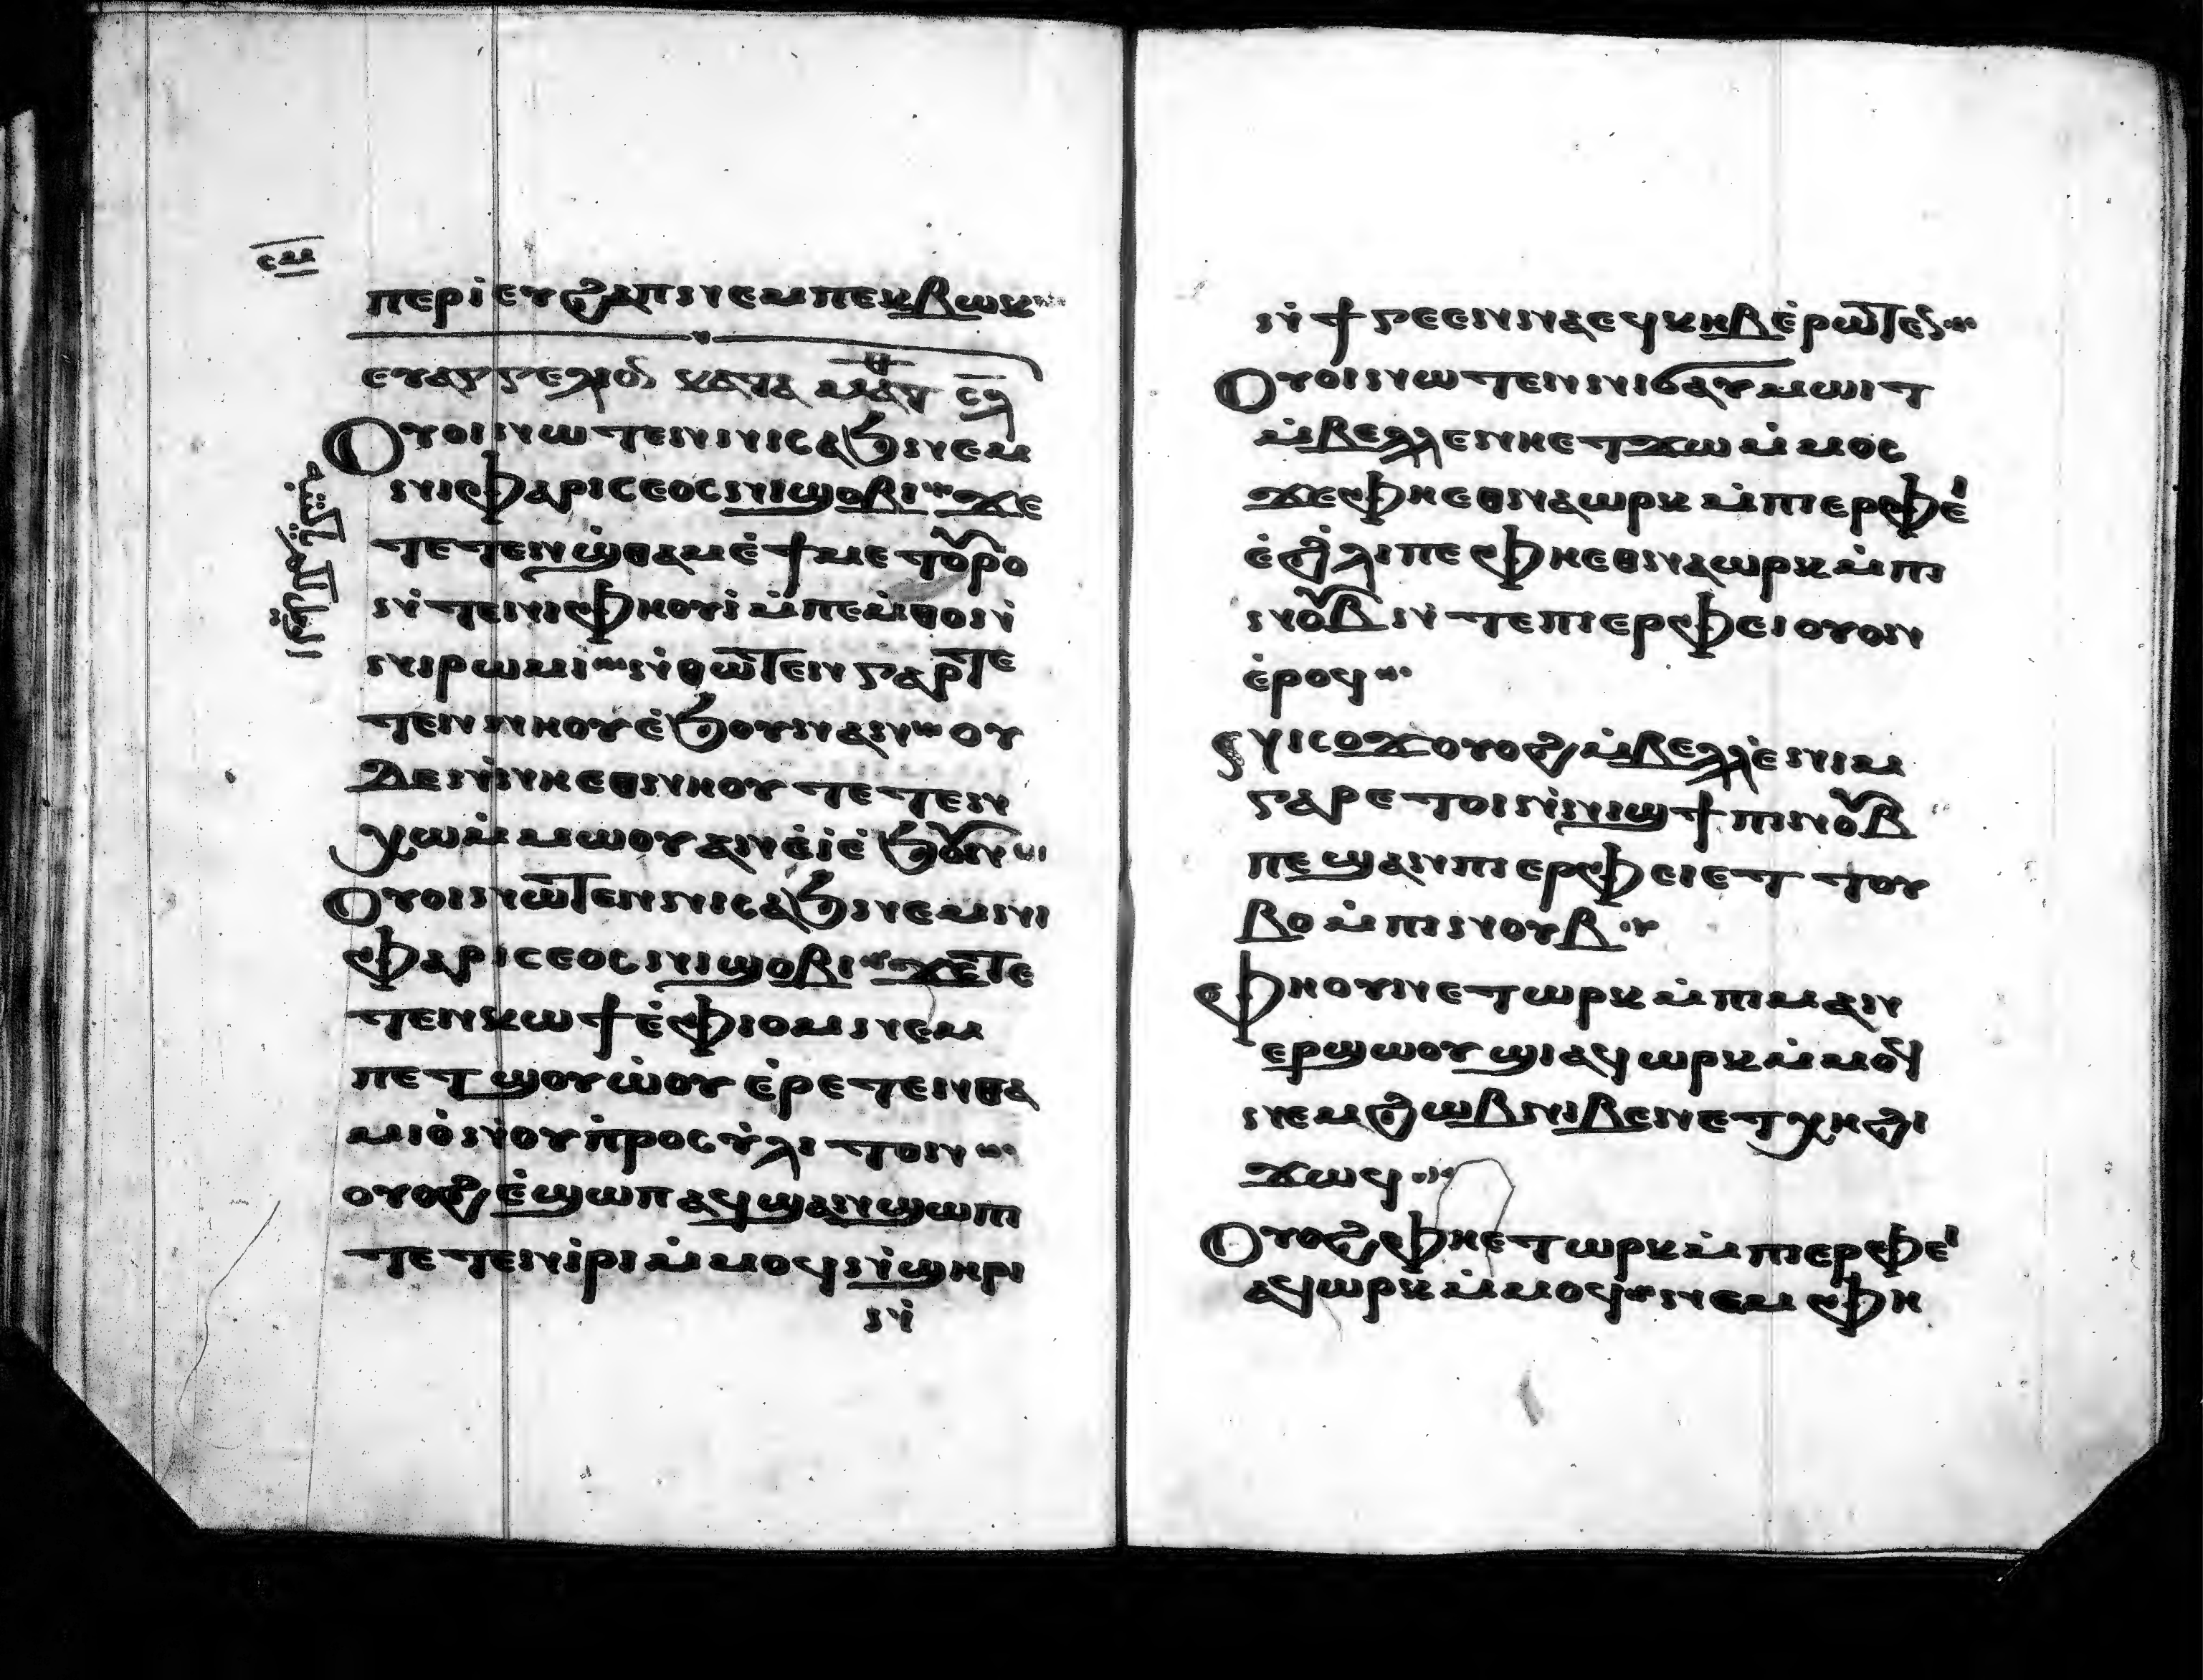 ⲥⲙ
ⲡⲉⲣⲓⲉⲩϩⲁⲡⲛⲉⲙⲡⲉⲕⲃⲱⲕ
ⲉⲩⲁⲅⲅⲉⲗⲓⲟⲛ ⲕⲁⲧⲁ ⲙⲁⲧ
ⲟⲩⲟⲓⲛⲱⲧⲉⲛⲛⲓⲥⲁϧⲛⲉⲙ
ⲛⲓⲫⲁⲣⲓⲥⲉⲟⲥⲛⲓϣⲟⲃⲓ ϫⲉ
ⲧⲉⲧⲉⲛϣ̇ⲑⲁⲙⲉ̇ϯⲙⲉⲧⲟⲩⲣⲟ
ⲛ̇ⲧⲉⲛⲓⲫⲏⲟⲩⲓ̇ⲙ̇ⲡⲉⲙ̇ⲑⲟⲛ
ⲛⲓⲣⲱⲙⲓ ⲛ̇ⲑⲱⲧⲉⲛⲅⲁⲣⲧⲉ
ⲧⲉⲛⲛⲏⲟⲩⲉ̇ϧⲟⲩⲛⲁⲛ ⲟⲩ
ⲇⲉⲛ̇ⲛⲏⲉⲑⲛⲏⲟⲩⲧⲉⲧⲉⲛ
ⲭⲱⲙ̇ⲙⲱⲟⲩⲁⲛⲉ̇ⲓ̇ⲉ̇ϧⲟⲩⲛ
ⲟⲩⲟⲓⲛⲱⲧⲉⲛⲛⲓⲥⲁϧⲛⲉⲙⲛⲓ
ⲫⲁⲣⲓⲥⲉⲟⲥⲛⲓϣⲟⲃⲓ ϫⲉⲧⲉ
ⲧⲉⲛⲕⲱϯⲉ̇ⲫⲓⲟⲙⲛⲉⲙ
ⲡⲉⲧϣⲟⲩⲱ̇ⲟⲩⲉ̇ⲣⲉⲧⲉⲛⲑⲁ
ⲙⲓⲟ̇ⲛ̇ⲟⲩⲡ̇ⲣⲟⲥⲩ̇ⲗⲓⲧⲟⲛ
ⲟⲩⲟϩⲉ̇ϣⲱⲡⲁϥϣⲁⲛϣⲱⲡⲓ
ⲧⲉⲧⲉⲛⲓ̇ⲣⲓⲙ̇ⲙⲟϥⲛ̇ϣⲏⲣⲓ
ⲛ̇
ⲛ̇ϯⲅⲉⲉⲛⲛⲁⲉϥⲕⲏⲃⲉ̇ⲣⲱⲧⲉⲛ
ⲟⲩⲟⲓⲛⲱⲧⲉⲛⲛⲓϭⲁⲩⲙⲱⲓⲧ
ⲙ̇ⲃⲉⲗⲗⲉⲛⲏⲉⲧϫⲱⲙ̇ⲙⲟⲥ
ϫⲉⲫⲏⲉⲑⲛⲁⲱⲣⲕⲙ̇ⲡⲓⲉⲣⲫⲉⲓ
ⲉ̇ϩⲗⲓⲡⲉⲫⲏⲉⲑⲛⲁⲱⲣⲕⲙ̇ⲡⲓ
ⲛⲟⲩⲃⲛ̇ⲧⲉⲡⲓⲉⲣⲫⲉⲓⲟⲩⲟⲛ
ⲉ̇ⲣⲟϥ
ⲛⲓⲥⲟϫⲟⲩⲟϩⲙ̇ⲃⲉⲗⲗⲉ̇ⲛⲓⲙ
ⲅⲁⲣⲉⲧⲟⲓⲛ̇ⲛⲓϣϯⲡⲓⲛⲟⲩⲃ
ⲡⲉϣⲁⲛⲡⲓⲉⲣⲫⲉⲓⲉⲧⲧⲟⲩ
ⲃⲟⲙ̇ⲡⲓⲛⲟⲩⲃ
ⲫⲏⲟⲩⲛⲉⲧⲱⲣⲕⲙ̇ⲡⲓⲙⲁⲛ
ⲉⲣϣⲱⲟⲩϣⲓⲁϥⲱⲣⲕⲙ̇ⲙⲟϥ
ⲛⲉⲙϩⲱⲃⲛⲓⲃⲉⲛⲉⲧⲭⲏϩⲓ
ϫⲱϥ
ⲟⲩⲟϩⲫⲏⲉⲧⲱⲣⲕⲙ̇ⲡⲓⲉⲣⲫⲉⲓ
ⲁϥⲱⲣⲕⲙ̇ⲙⲟϥ ⲛⲉⲙⲫⲏ